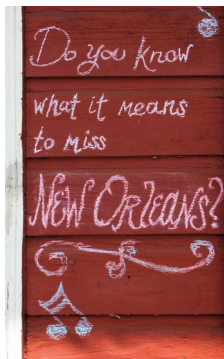 Do you know
what it means
to miss
NEW ORLEANS?